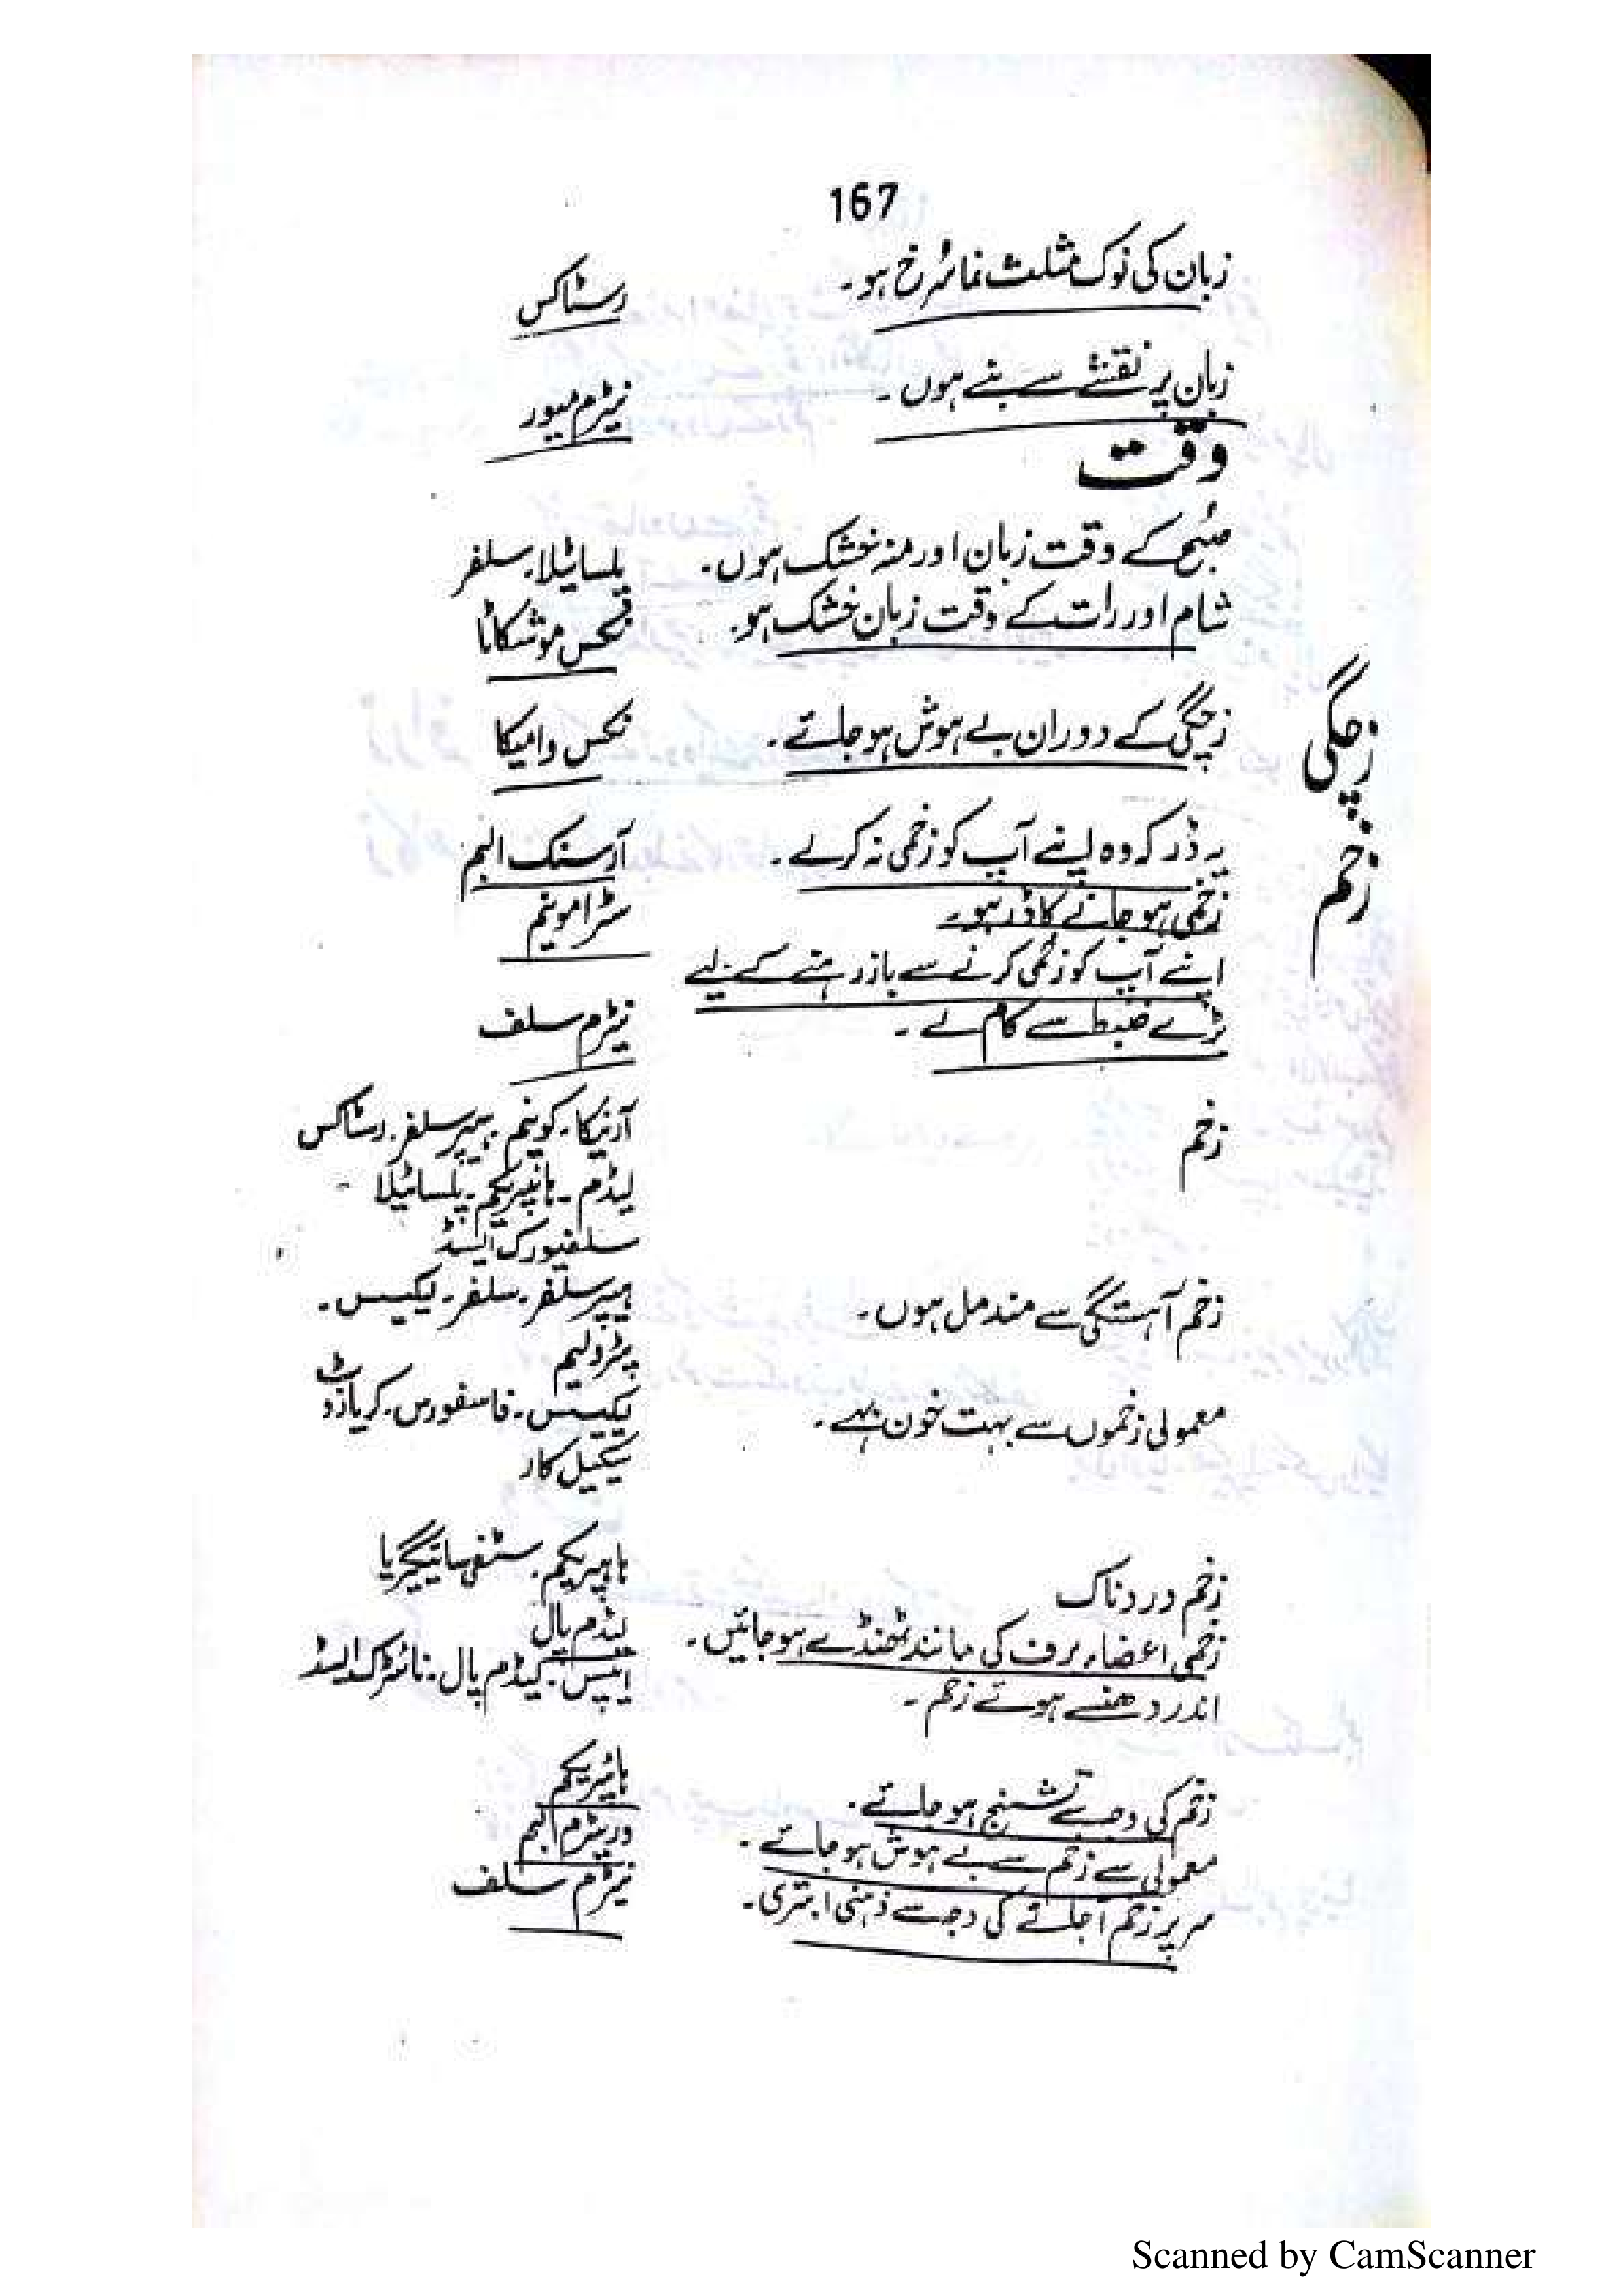 167
زبان کی نوک مثلث نما سُرخ ہو۔ رسٹاکس
زبان پر نقشے سے بنے ہوں۔ نیٹرم میور
وقت
صبح کے وقت زبان اور منہ خشک ہوں۔ پلساٹیلا۔ سلفر
شام اور رات کے وقت زبان خشک ہو۔ نکس موشکاٹا
زچگی
زچگی کے دوران بے ہوش ہو جائے۔ نکس وامیکا
زخم
یہ ڈر کہ وہ اپنے آپ کو زخمی نہ کرلے۔ آرسنک البم
زخمی ہو جانے کا ڈر ہو۔ سٹرامونیم
اپنے آپ کو زخمی کرنے سے باز رہنے کے لیے
بڑے ضبط سے کام لے۔ نیٹرم سلف
زخم آرنیکا۔ کونیم۔ ہیپر سلفر۔ رسٹاکس
لیڈم۔ ہائپریکم۔ پلساٹیلا
سلفیورک ایسڈ
زخم آہستگی سے مندمل ہوں۔ ہیپر سلفر۔ سلفر۔ لیکیسس۔
پٹرولیم
معمولی زخموں سے بہت خون بہے۔ لیکیسس۔ فاسفورس۔ کریازوٹ
سیکیل کار
زخم دردناک ہائپریکم۔ سٹفی سائیگریا
زخمی اعضاء برف کی مانند ٹھنڈے ہو جائیں۔ لیڈم پال
اندر دھنسے ہوئے زخم۔ ایپس۔ لیڈم پال۔ نائٹرک ایسڈ
زخم کی وجہ سے تشنج ہو جائے۔ ہائپریکم
معمولی سے زخم سے بے ہوش ہو جائے۔ وریٹرم البم
سر پر زخم آ جانے کی وجہ سے ذہنی ابتری۔ نیٹرم سلف
Scanned by CamScanner